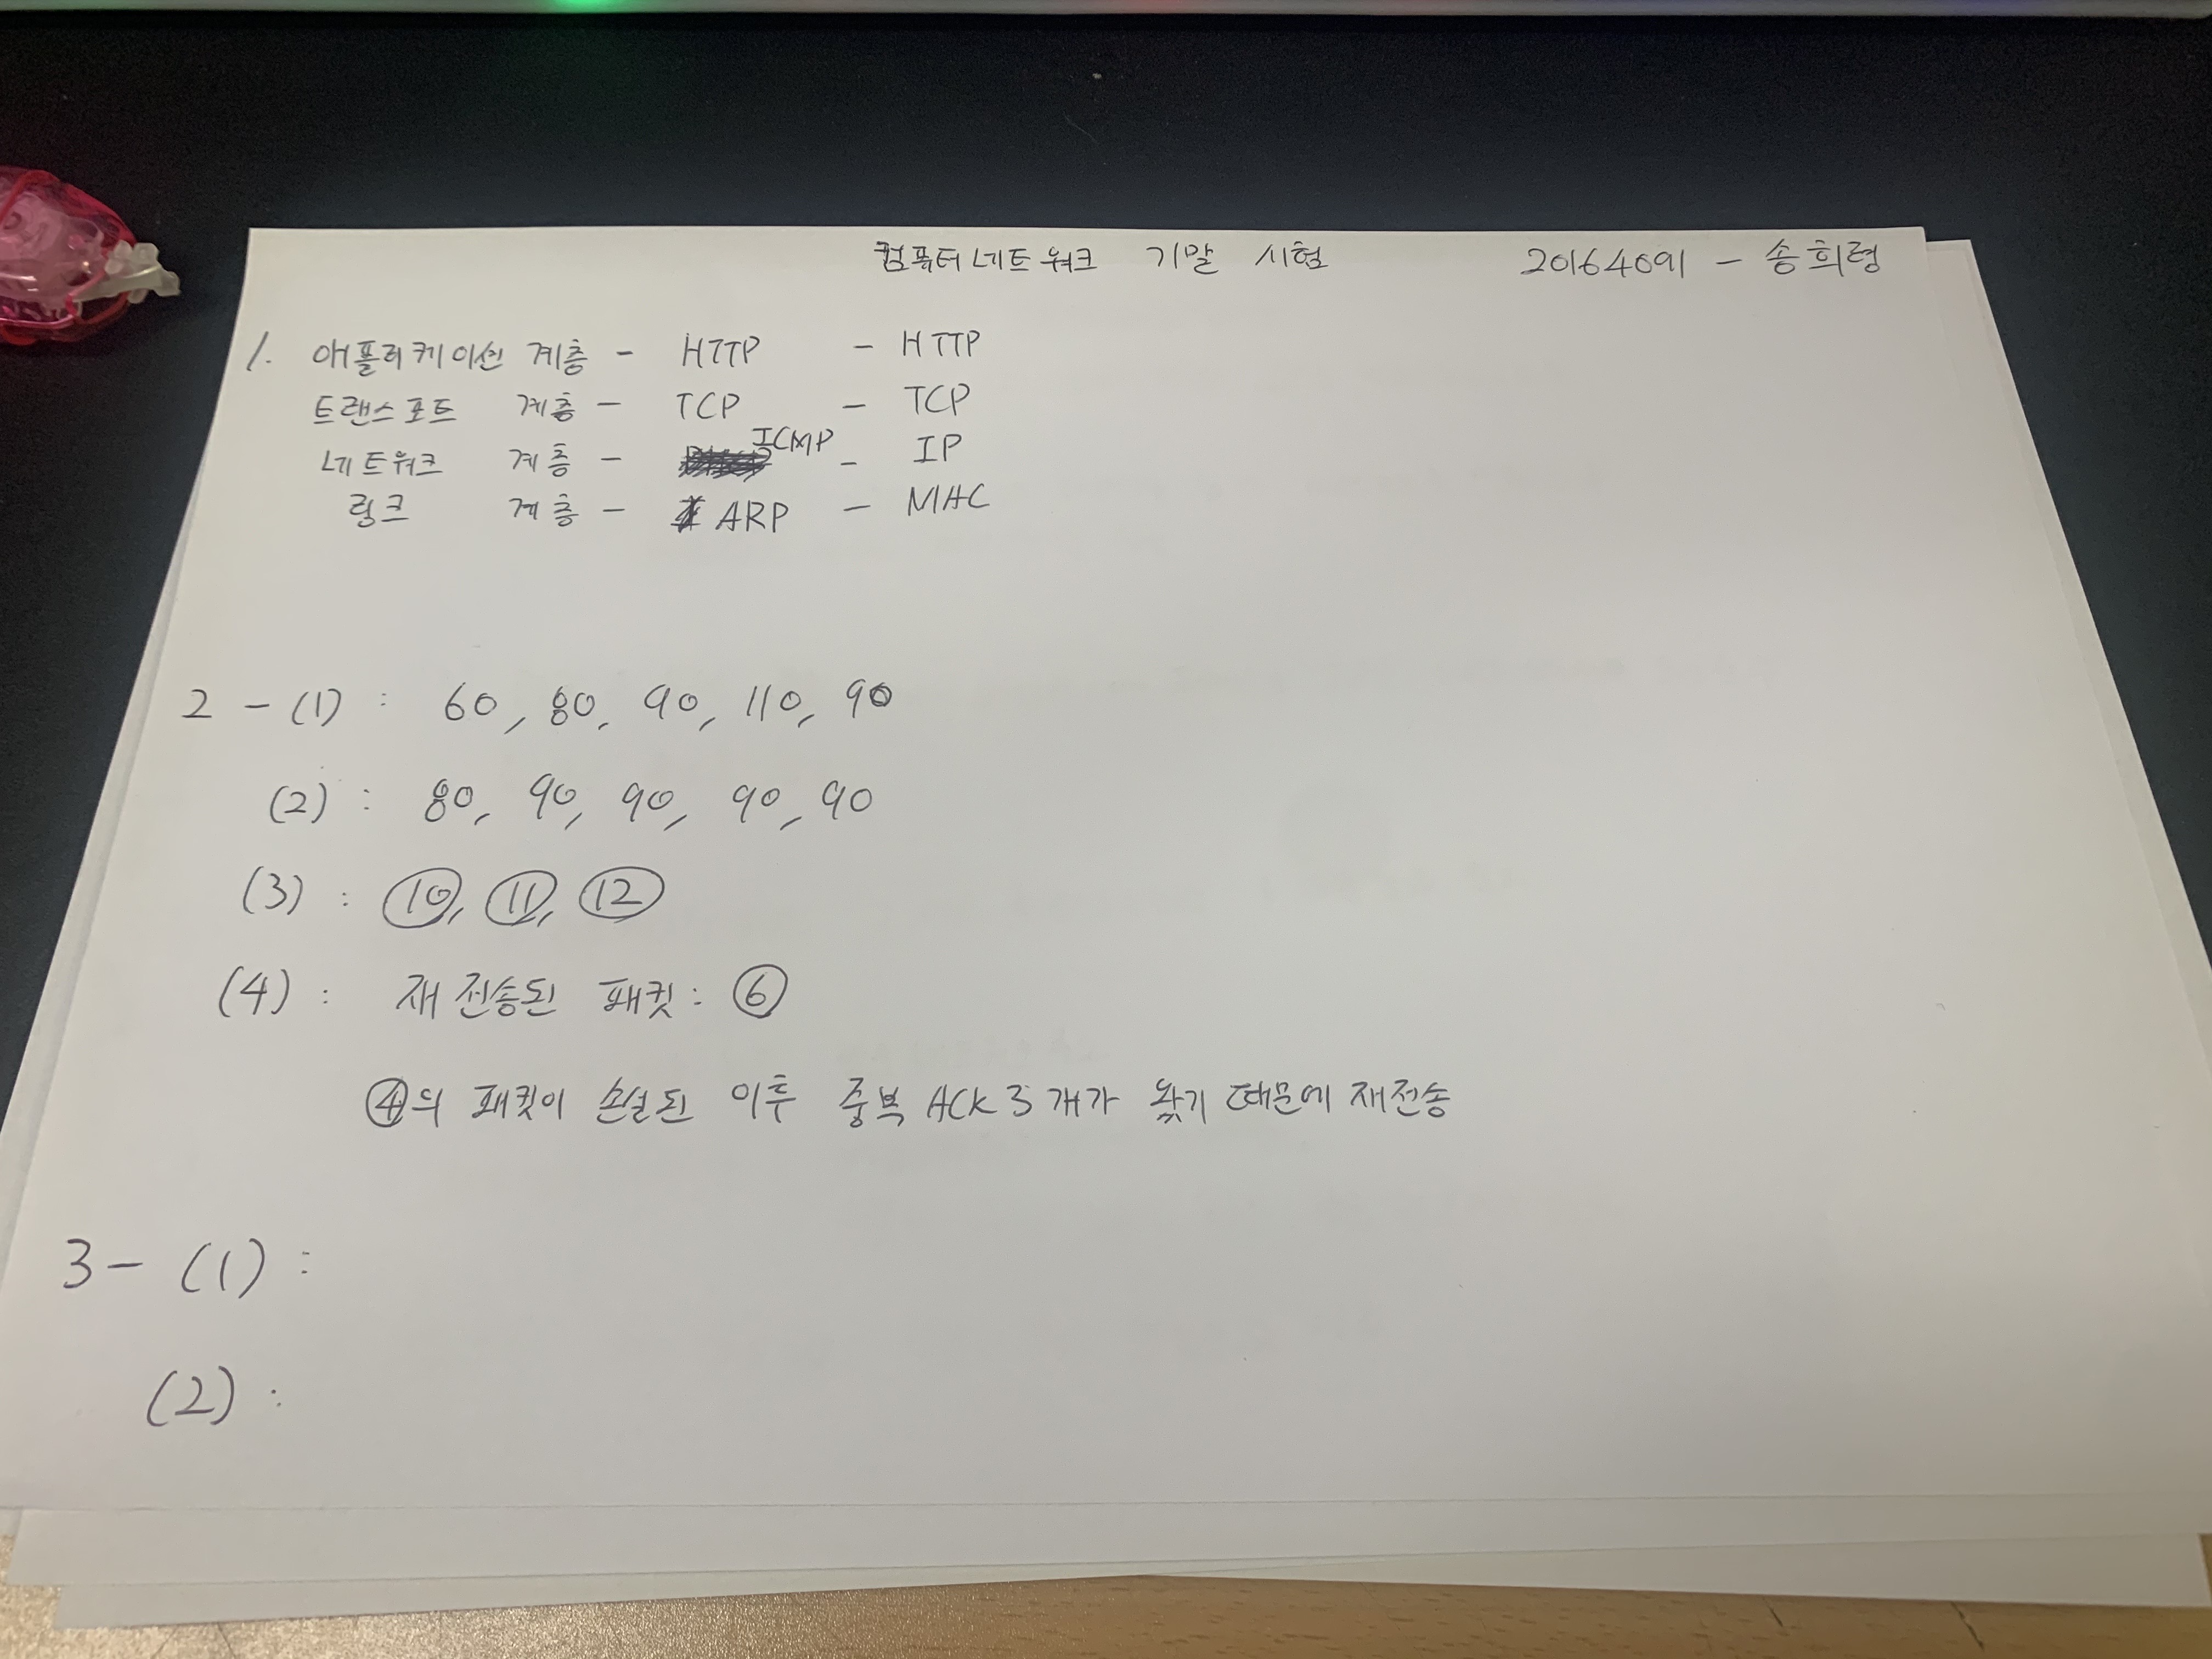 컴퓨터 네트워크 기말 시험 20164091 - 송희령
1. 애플리케이션 계층 - HTTP - HTTP
트랜스포트 계층 - TCP - TCP
네트워크 계층 - ICMP - IP
링크 계층 - ARP - MAC
2 - (1) : 60, 80, 90, 110, 90
(2) : 80, 90, 90, 90, 90
(3) : ⑩, ⑪, ⑫
(4) : 재 전송된 패킷 : ⑥
④의 패킷이 손실된 이후 중복 ACK 3개가 왔기 때문에 재전송
3 - (1) :
(2) :